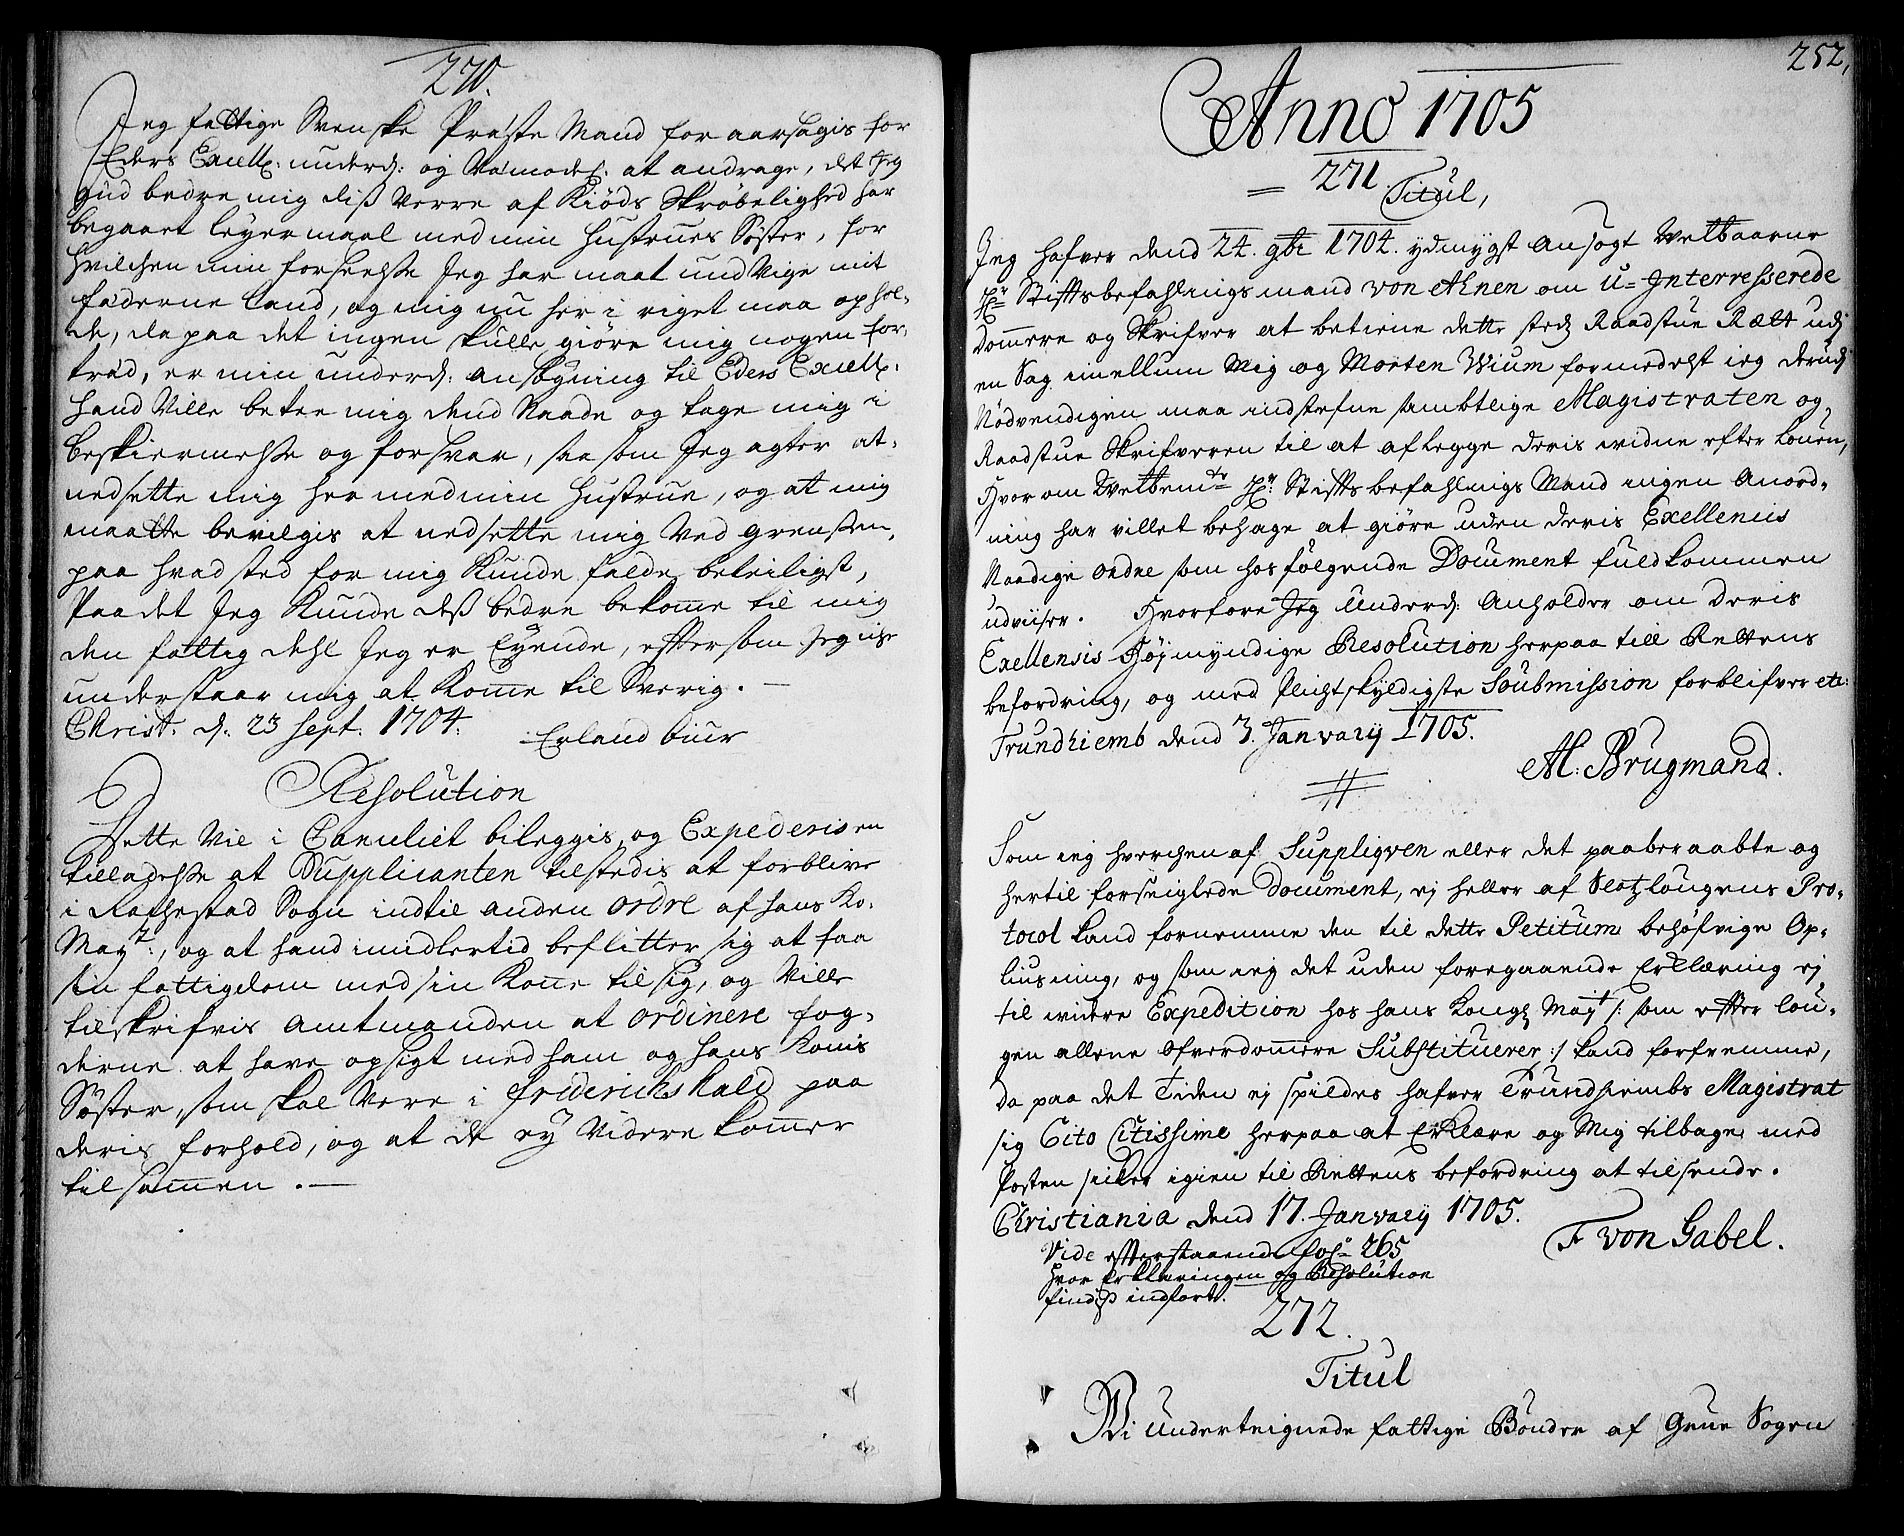 270.
Jeg fattige Svenske Præste Mand foraarsagis for
Eders Excell: underd: og Væmodel: at andrage, det Jeg
gud bedre mig diß verre af Kiøds Skrøbelighed har
begaaet leyermaal med min Hustrues Søster, for
hvilchen min forseelsse Jeg har maat und Vige mit
fæderne land, og mig nu her i riget maa ophol-
de, da paa det ingen skulle giøre mig nogen for-
træd, er min underd: ansøgning til Eders Excell:
hand Ville betee mig dend Naade og tage mig i
beskiermelsse og forsvar, saa som Jeg agter at
nedsette mig her med min Hustrue, og at mig
maatte bevilgis at nedsette mig Ved grensen,
paa hvad sted for mig Kunde falde beleiligst,
Paa det Jeg Kunde deß bedre bekome til mig
den fattig dehl Jeg er Eyende, eftersom Jeg iche
understaar mig at Kome til Sverig. —
Christ: d. 23 Sept: 1704. Erland buur
Resolution
Dette Vil i Canceliet bileggis og Expederis en
tilladelsse at Supplicanten tilstedis at forblive
i Rachestad Sogn indtil anden ordre af hans Ko:
Mayt:, og at hand imidlertid beflitter sig at faa
sin fattigdom med sin Kone til sig, og Ville
tilskrifvis Amtmanden at ordinere fog-
derne at have opsigt med ham og hans Konis
Søster, som skal Vere i Friderichshald paa
deris forhold, og at de ey Videre kommer
tilsamen. —
252,
Anno 1705
271.
Titul,
Jeg hafver dend 24. 9br 1704. ydmygst ansøgt Velbaarne
Hr Stiftsbefahlingsmand von Ahnen om U-Interresserede
Dommere og Skrifver at betiene dette steds Raadstue Rætt udj
en Sag imellum Mig og Morten Wium formedelst ieg derudj
Nødvendigen maa indstefne samtlige Magistraten og
Raadstue Skrifveren til at aflegge deris vidne efter Louen,
Hvor om Velbemte Hr: Stiftsbefahlings Mand ingen Anord-
ning har villet behage at giøre uden deris Exellencis
Naadige ordre som hosfølgende Document fuldkommen
udviiser. Hvorfore Jeg Underd: Anholder om Deris
Exellensis Højmyndige Resolution herpaa till Rettens
befordring, og med Plichtskyldigste Soubmission forblifver etc:
Trundhiemb dend 3. January 1705.
A: Brugmand.
Som ieg hverchen af Suppliqven eller det paaberaabte og
hertil forseiglede Document, ej heller af Slotzlougens Pro-
tocol kand fornemme den til dette Petitum behøfvige Op-
liusning, og som ieg det uden foregaaende Erklæring ej
til videre Expedition hos hans Kongl Mayt /: som efter lou-
gen allene Ofverdommere Substituerer :/ kand forfremme,
da paa det Tiden ej spildes hafver Trundhiembs Magistrat
sig Cito Citissime herpaa at Erklære og Mig tilbage med
Posten sicher igien til Rettens befordring at tilsende.
Christiania dend 17. January 1705.
F von Gabel.
Vide efterstaaende fol: 265
hvor Erklæringen og Resolution
findis indført.
272.
Titul
Wi Underteignede fattige Bønder af Grue Sogen